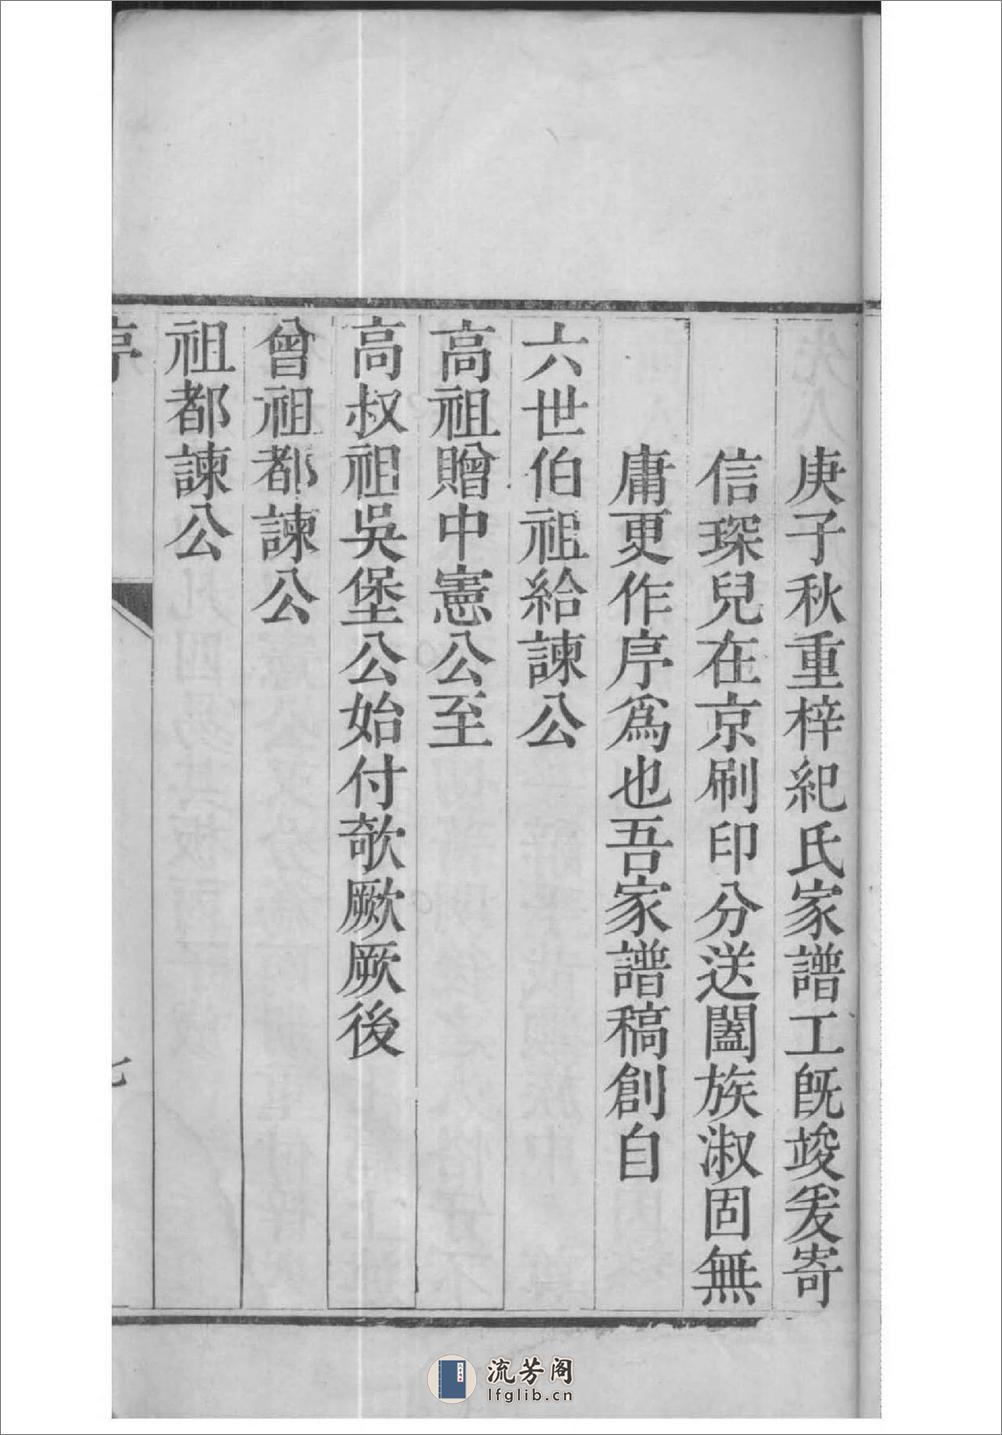 庚子秋重梓紀氏家譜工旣竣爰寄
信琛兒在京刷印分送闔族淑固無
庸更作序爲也吾家譜稿創自
六世伯祖給諫公
高祖贈中憲公至
高叔祖吳堡公始付欹劂厥後
曾祖都諫公
祖都諫公
序
七
流芳阁
lfglib.cn